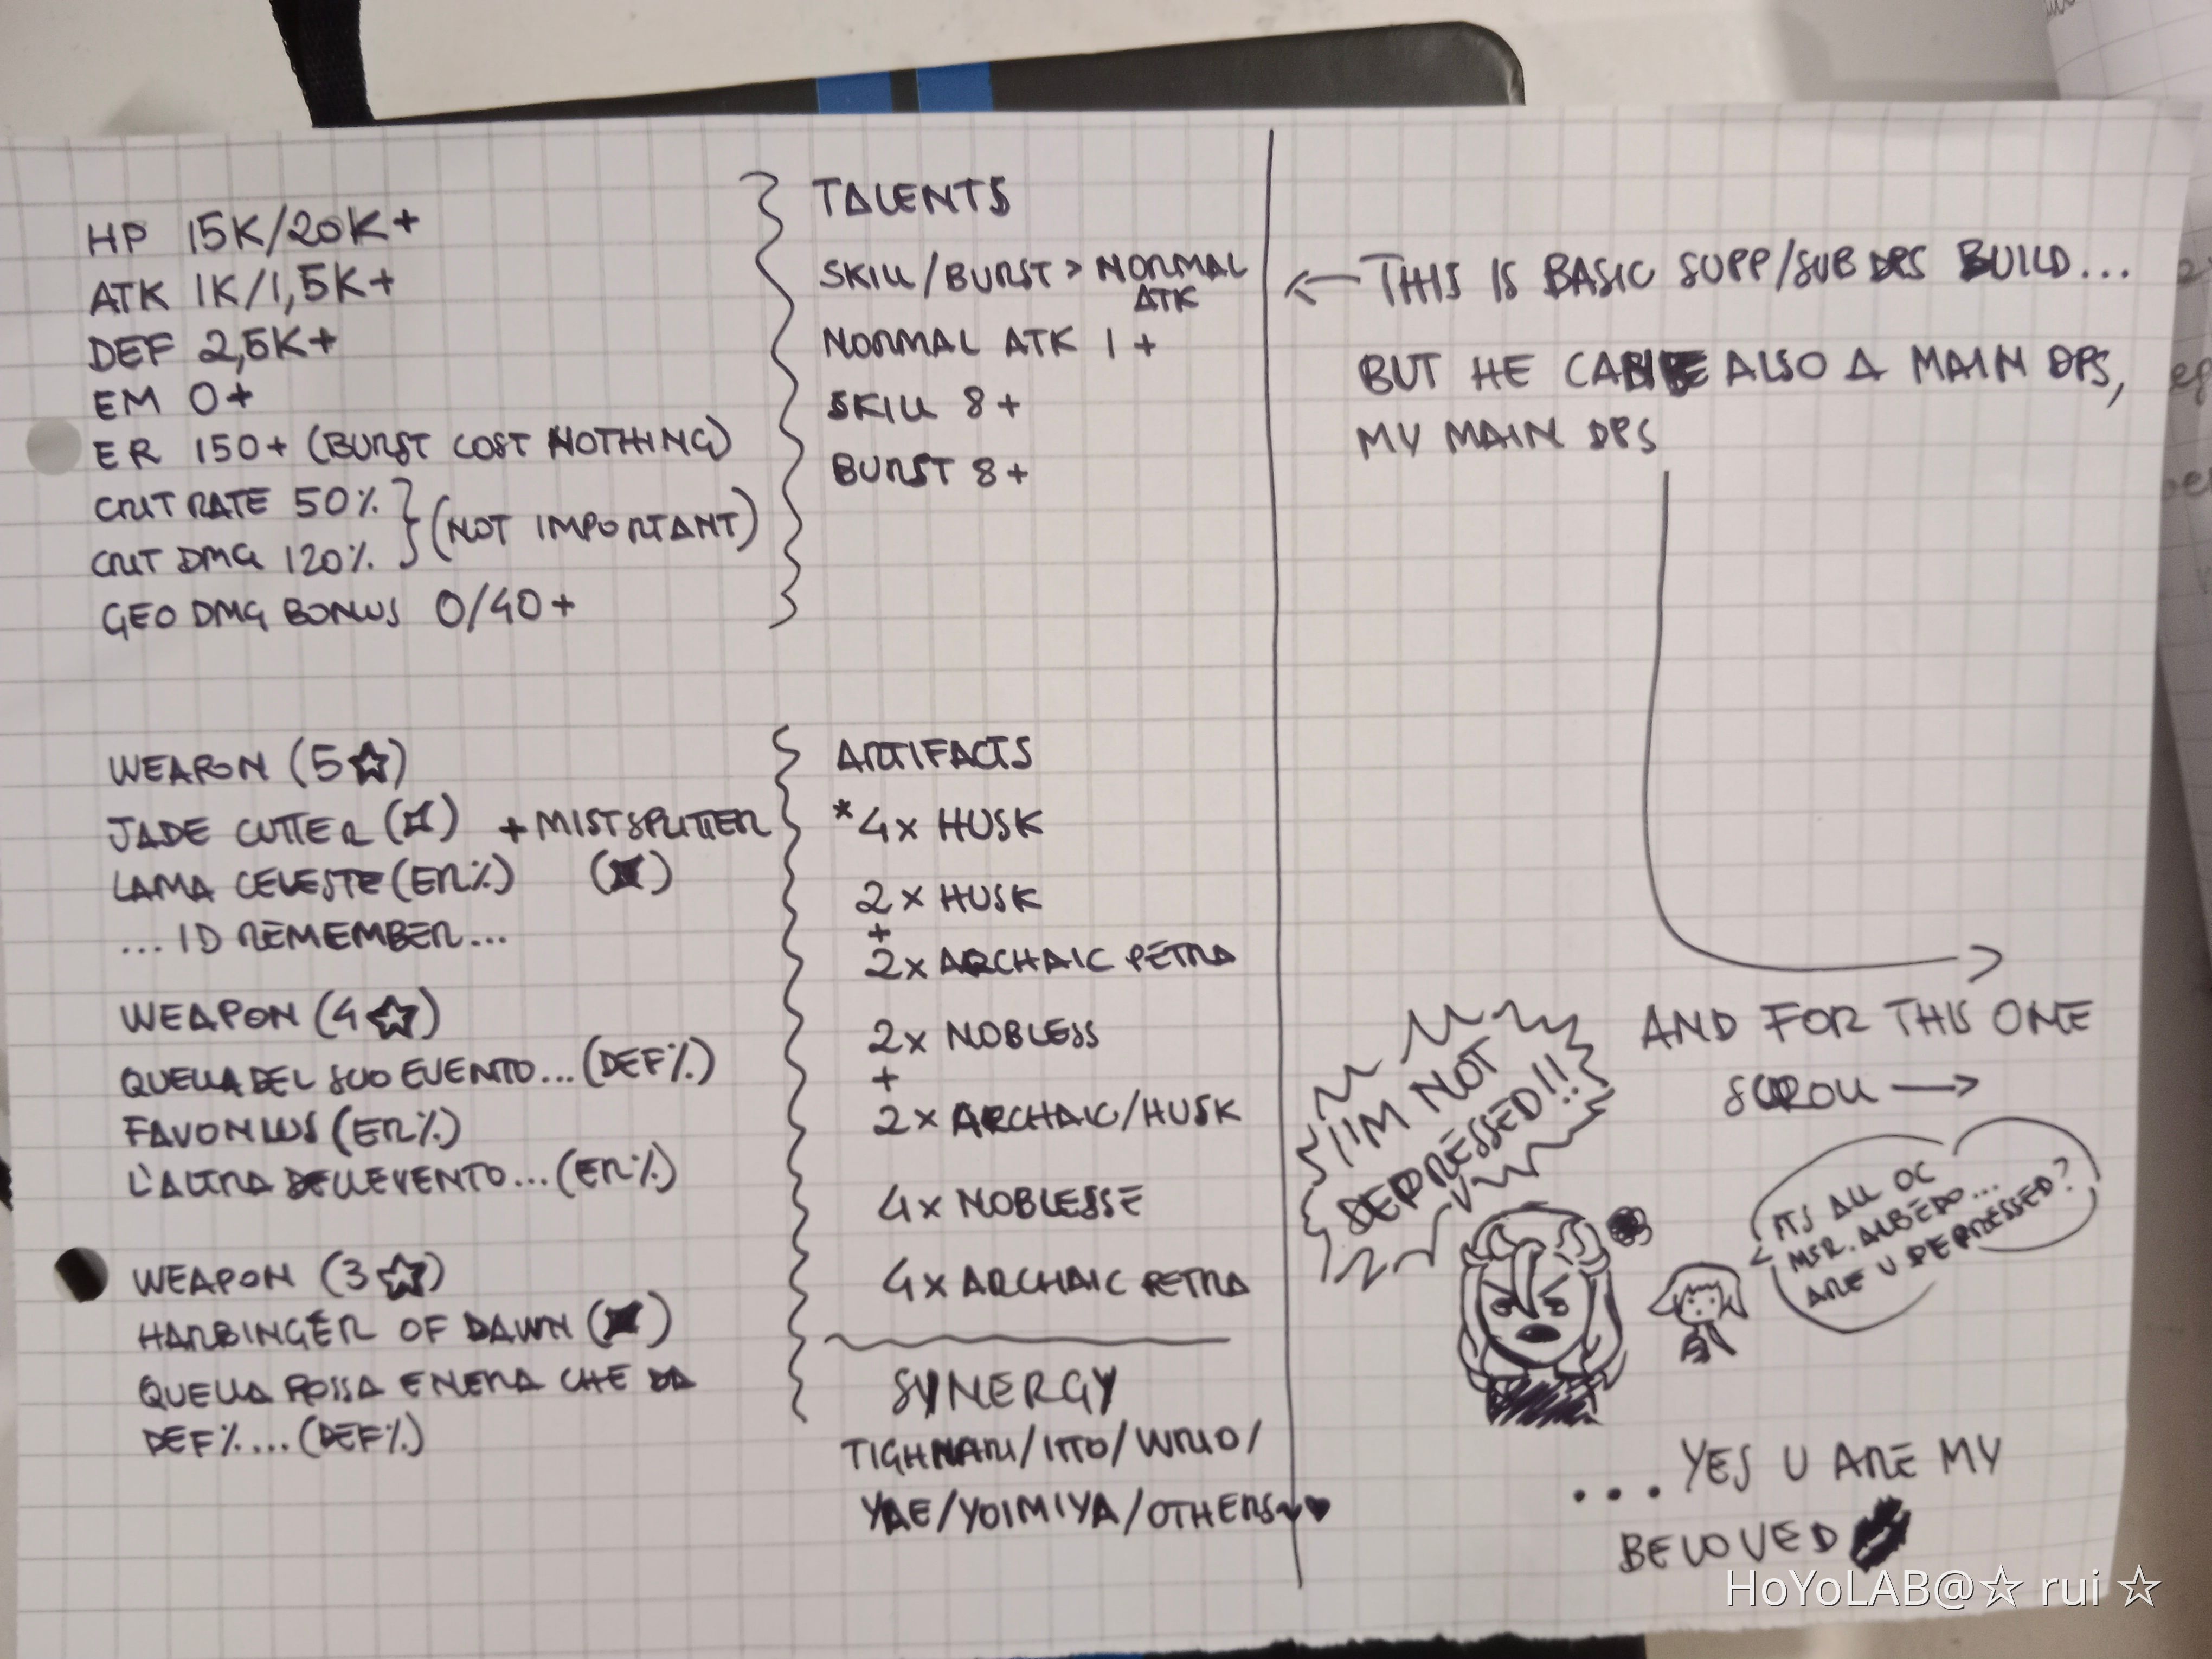 HP 15K/20K+
ATK 1K/1,5K+
DEF 2,5K+
EM 0+
ER 150+ (BURST COST NOTHING)
CRIT RATE 50%
CRIT DMG 120%
(NOT IMPORTANT)
GEO DMG BONUS 0/40+
TALENTS
SKILL/BURST > NORMAL
ATK
NORMAL ATK 1+
SKILL 8+
BURST 8+
WEAPON (5☆)
JADE CUTTER ( ) + MISTSPLITTER
LAMA CELESTE (ER%) ( )
... ID REMEMBER...
WEAPON (4☆)
QUELLA DEL SUO EVENTO... (DEF%)
FAVONIUS (ER%)
L'ALTRA DELL'EVENTO... (ER%)
WEAPON (3☆)
HARBINGER OF DAWN ( )
QUELLA ROSSA E NERA CHE DA
DEF%... (DEF%)
ARTIFACTS
*4x HUSK
2x HUSK
+
2x ARCHAIC PETRA
2x NOBLESS
+
2x ARCHAIC/HUSK
4x NOBLESSE
4x ARCHAIC PETRA
SYNERGY
TIGHNARI/ITTO/WRIO/
YAE/YOIMIYA/OTHERS ♥♥
← THIS IS BASIC SUPP/SUB DPS BUILD...
BUT HE CAN BE ALSO A MAIN DPS,
MY MAIN DPS
AND FOR THIS ONE
SCROLL →
I'M NOT
DEPRESSED!!
ITS ALL OC
MSR. ALBEDO...
ARE U DEPRESSED?
... YES U ARE MY
BELOVED
HoYoLAB@☆ rui ☆